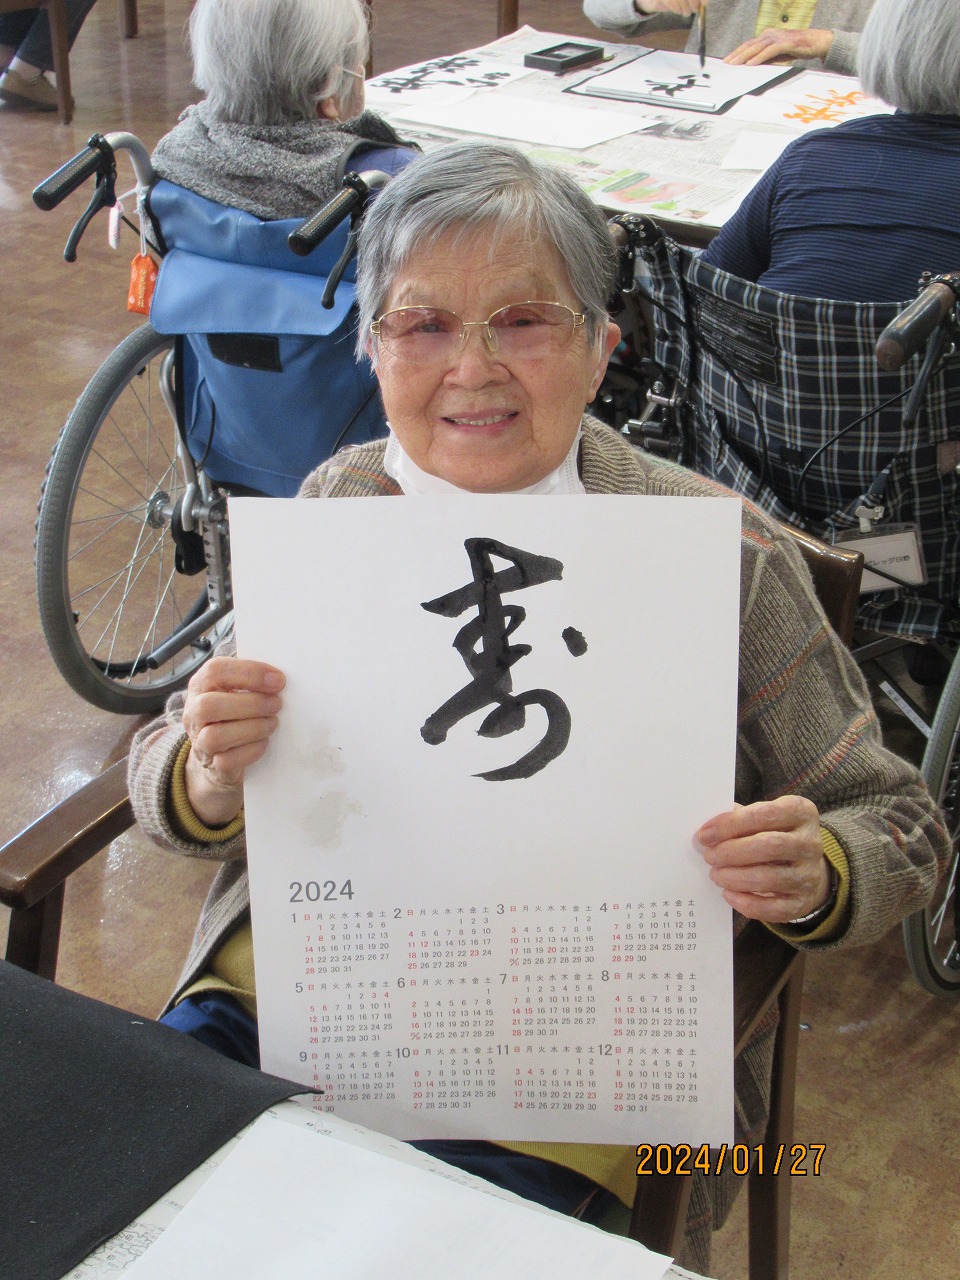 寿
2024
1 日 月 火 水 木 金 土
1 2 3 4 5 6
7 8 9 10 11 12 13
14 15 16 17 18 19 20
21 22 23 24 25 26 27
28 29 30 31
2 日 月 火 水 木 金 土
1 2 3
4 5 6 7 8 9 10
11 12 13 14 15 16 17
18 19 20 21 22 23 24
25 26 27 28 29
3 日 月 火 水 木 金 土
1 2
3 4 5 6 7 8 9
10 11 12 13 14 15 16
17 18 19 20 21 22 23
24/31 25 26 27 28 29 30
4 日 月 火 水 木 金 土
1 2 3 4 5 6
7 8 9 10 11 12 13
14 15 16 17 18 19 20
21 22 23 24 25 26 27
28 29 30
5 日 月 火 水 木 金 土
1 2 3 4
5 6 7 8 9 10 11
12 13 14 15 16 17 18
19 20 21 22 23 24 25
26 27 28 29 30 31
6 日 月 火 水 木 金 土
1
2 3 4 5 6 7 8
9 10 11 12 13 14 15
16 17 18 19 20 21 22
23/30 24 25 26 27 28 29
7 日 月 火 水 木 金 土
1 2 3 4 5 6
7 8 9 10 11 12 13
14 15 16 17 18 19 20
21 22 23 24 25 26 27
28 29 30 31
8 日 月 火 水 木 金 土
1 2 3
4 5 6 7 8 9 10
11 12 13 14 15 16 17
18 19 20 21 22 23 24
25 26 27 28 29 30 31
9 日 月 火 水 木 金 土
1 2 3 4 5 6 7
8 9 10 11 12 13 14
15 16 17 18 19 20 21
22 23 24 25 26 27 28
29 30
10 日 月 火 水 木 金 土
1 2 3 4 5
6 7 8 9 10 11 12
13 14 15 16 17 18 19
20 21 22 23 24 25 26
27 28 29 30 31
11 日 月 火 水 木 金 土
1 2
3 4 5 6 7 8 9
10 11 12 13 14 15 16
17 18 19 20 21 22 23
24 25 26 27 28 29 30
12 日 月 火 水 木 金 土
1 2 3 4 5 6 7
8 9 10 11 12 13 14
15 16 17 18 19 20 21
22 23 24 25 26 27 28
29 30 31
2024/01/27